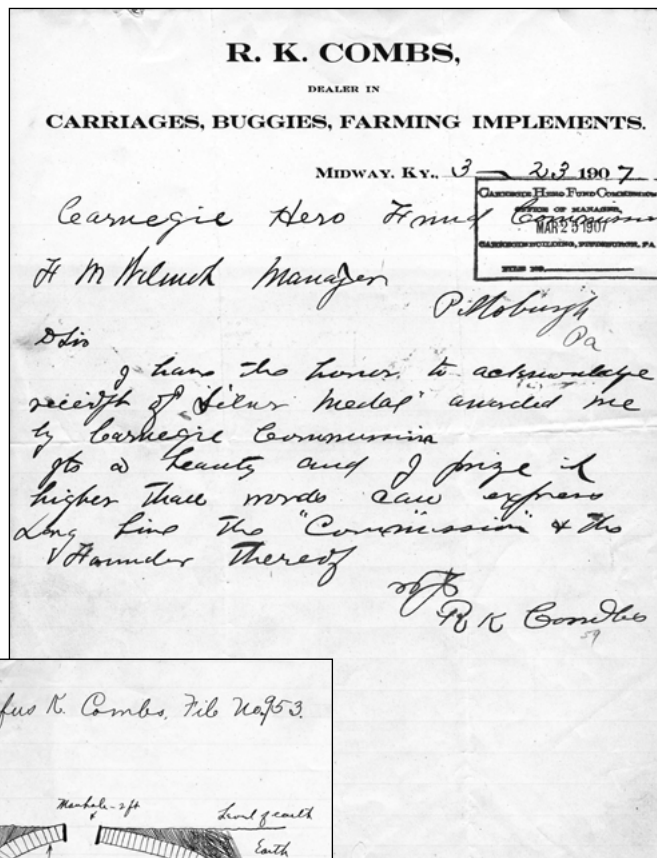 R. K. COMBS,
DEALER IN
CARRIAGES, BUGGIES, FARMING IMPLEMENTS.
MIDWAY, KY., 3 — 23 1907
CARNEGIE HERO FUND COMMISSION
OFFICE OF MANAGER,
MAR 25 1907
CARNEGIE BUILDING, PITTSBURGH, PA
FILE NO.
Carnegie Hero Fund Commission
F M Wilmot Manager
Pittsburgh
Pa
D Sir
I have the honor to acknowledge
receipt of Silver Medal awarded me
by Carnegie Commission
Its a beauty and I prize it
higher than words can express
Long live the "Commission" & the
Founder thereof
R K Combs
59
fus K. Combs, File No. 953.
Manhole - 2 ft
Level of earth
Earth